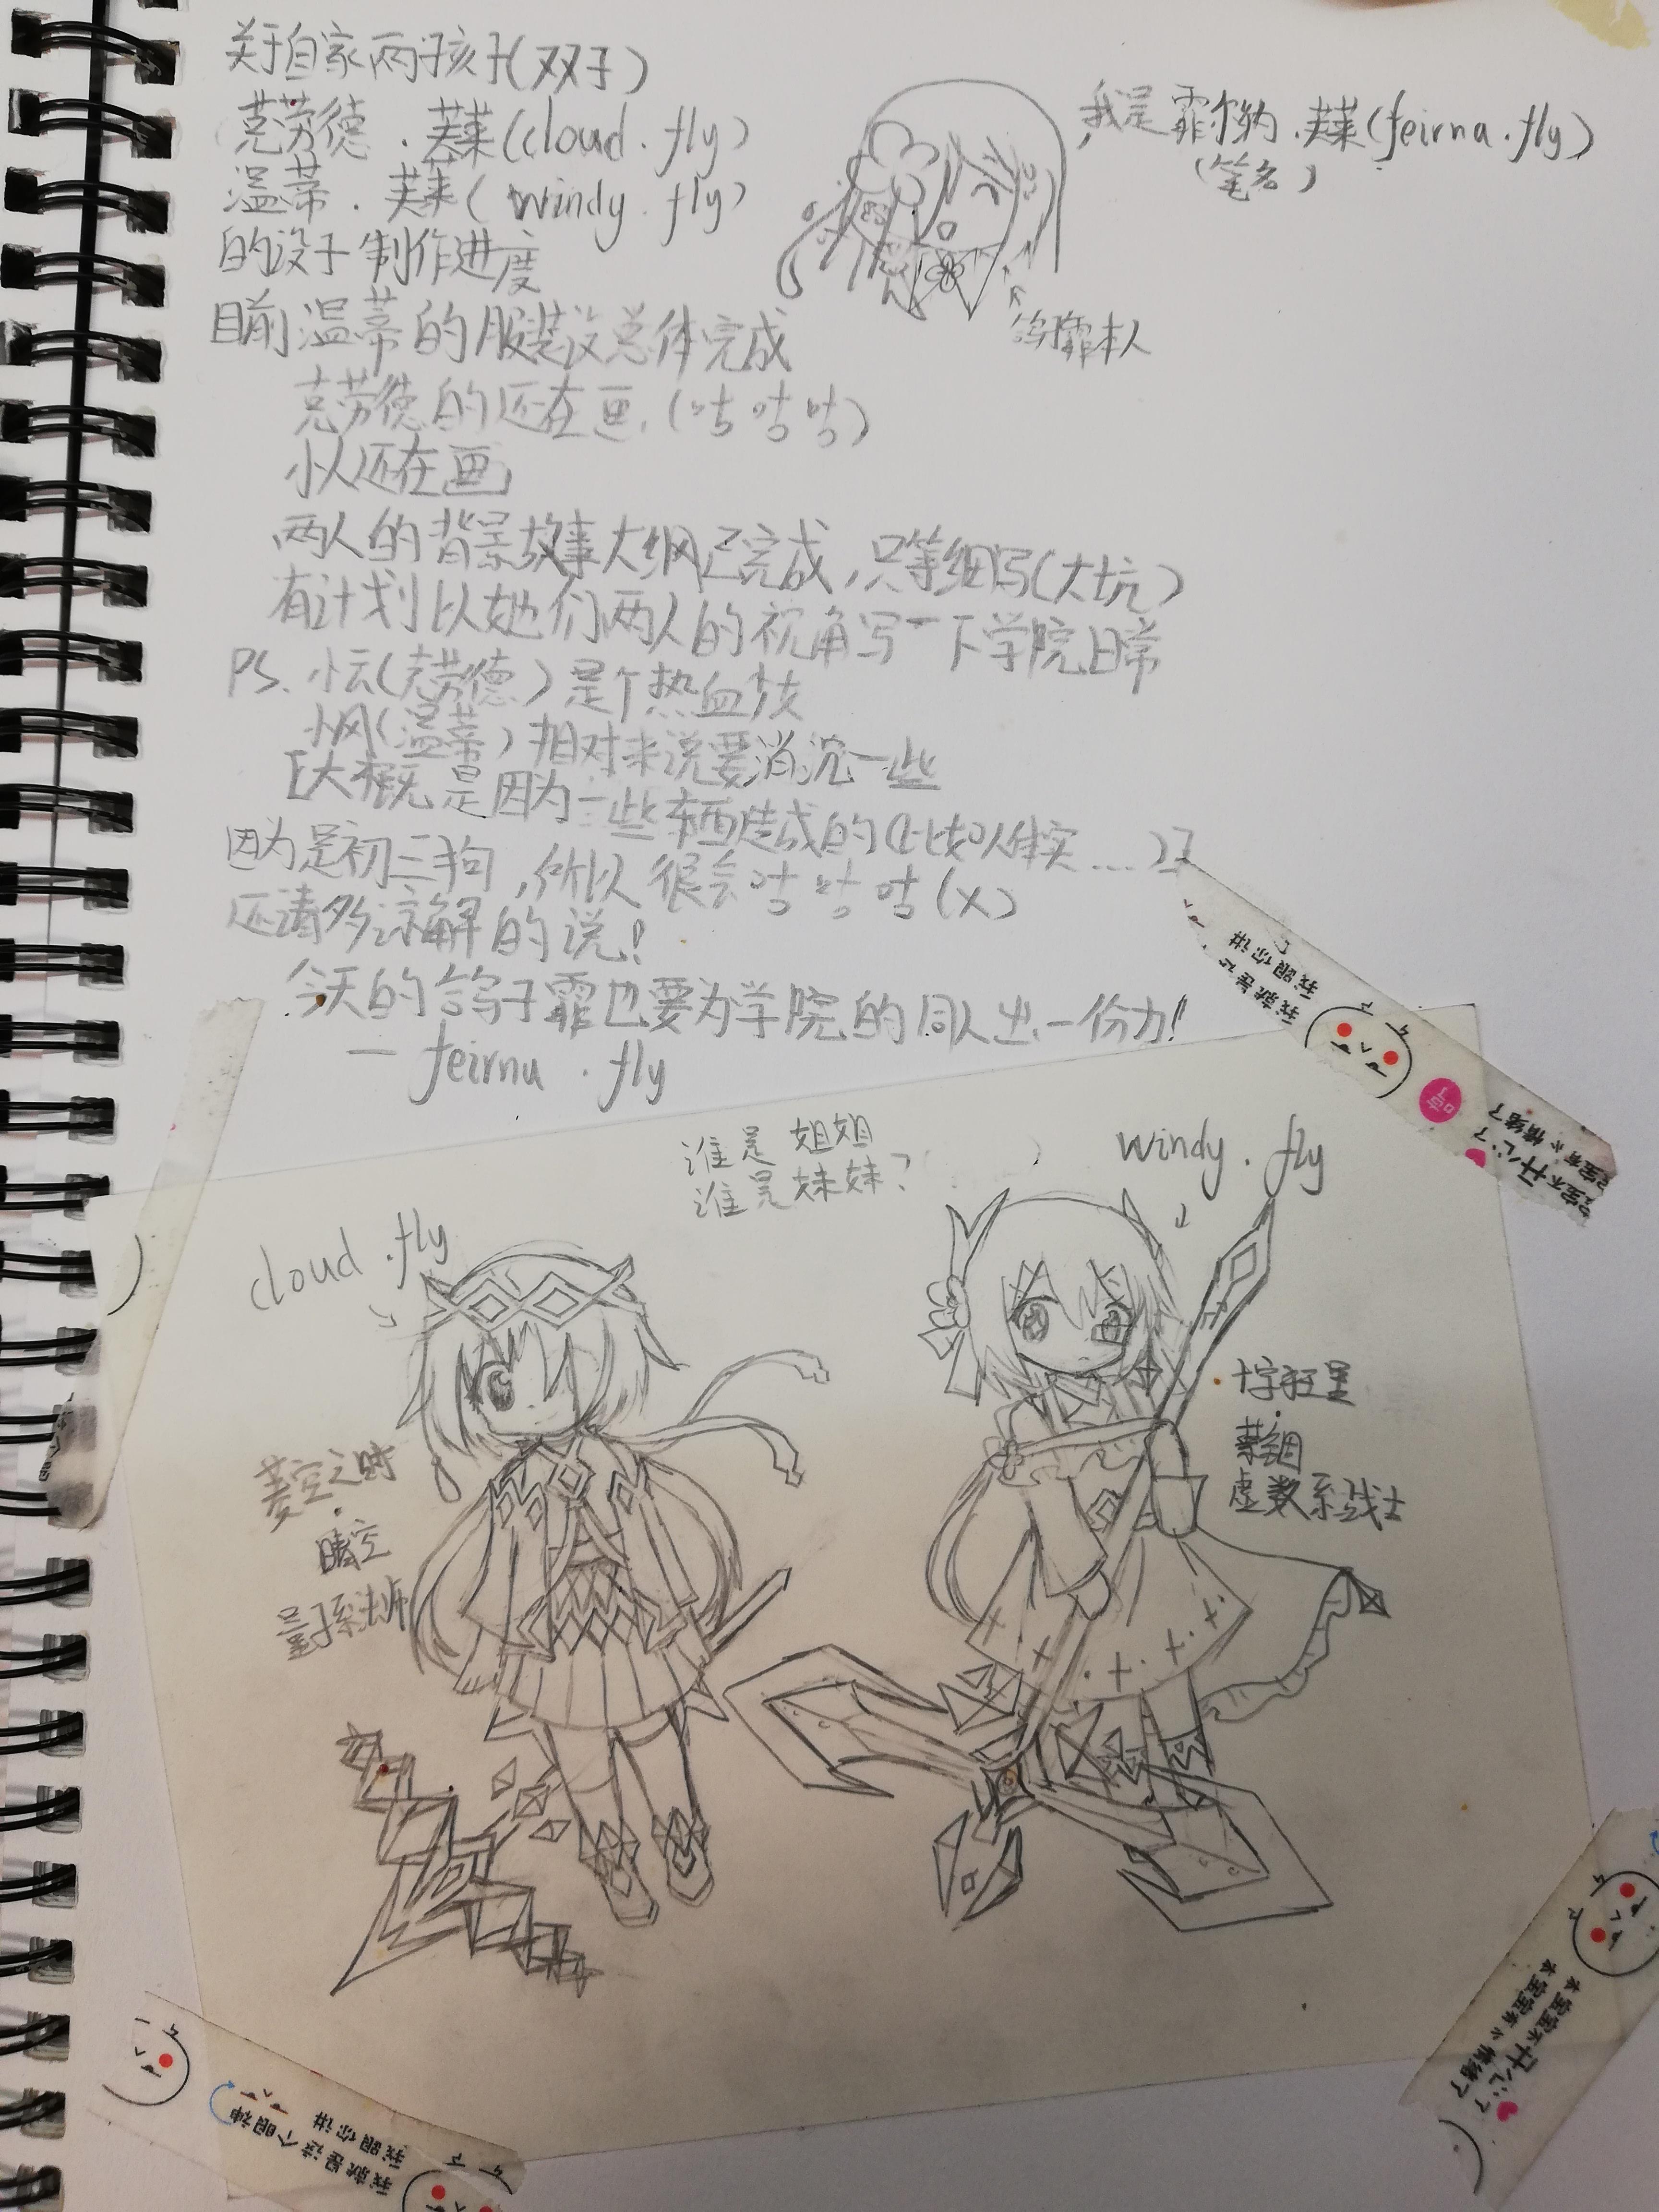 关于自家两孩子(双子)
克劳德.芙莱(cloud.fly)
温蒂.芙莱(windy.fly)
的设子制作进度
目前温蒂的服装设总体完成
克劳德的还在画.(咕咕咕)
小人还在画
两人的背景故事大纲已完成,只等细写(大坑)
有计划以她们两人的视角写一下学院日常
PS.小云(克劳德)是个热血少女
小风(温蒂)相对来说要消沉一些
[大概是因为一些东西造成的(比如人体实....)]
因为是初三狗,所以很会咕咕咕(x)
还请多谅解的说!
今天的鸽子霏也要为学院的同人出一份力!
— feirna.fly
我是霏尔纳.芙莱(feirna.fly)
(笔名)
鸽霏本人
谁是姐姐
谁是妹妹?
cloud.fly
windy.fly
菱空之时
·
晴空
量子系法师
十字狂星
·
虚数系战士
我跟你讲
我就是这
哼
宝宝不开心了
宝宝有小情绪了
我跟你讲
我就是这个眼神
本宝宝不开心了
本宝宝有小情绪了